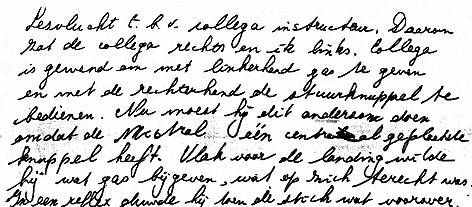 Lesvlucht t.b.v. collega instructeur. Daarom
zat de collega rechts en ik links. Collega
is gewend om met linkerhand gas te geven
en met de rechterhand de stuurknuppel te
bedienen. Nu moest hij dit andersom doen
omdat de Mistral één centraal geplaatste
knuppel heeft. Vlak voor de landing wilde
hij wat gas bijgeven, wat op zich terecht was.
In een reflex duwde hij toen de stick wat voorover.